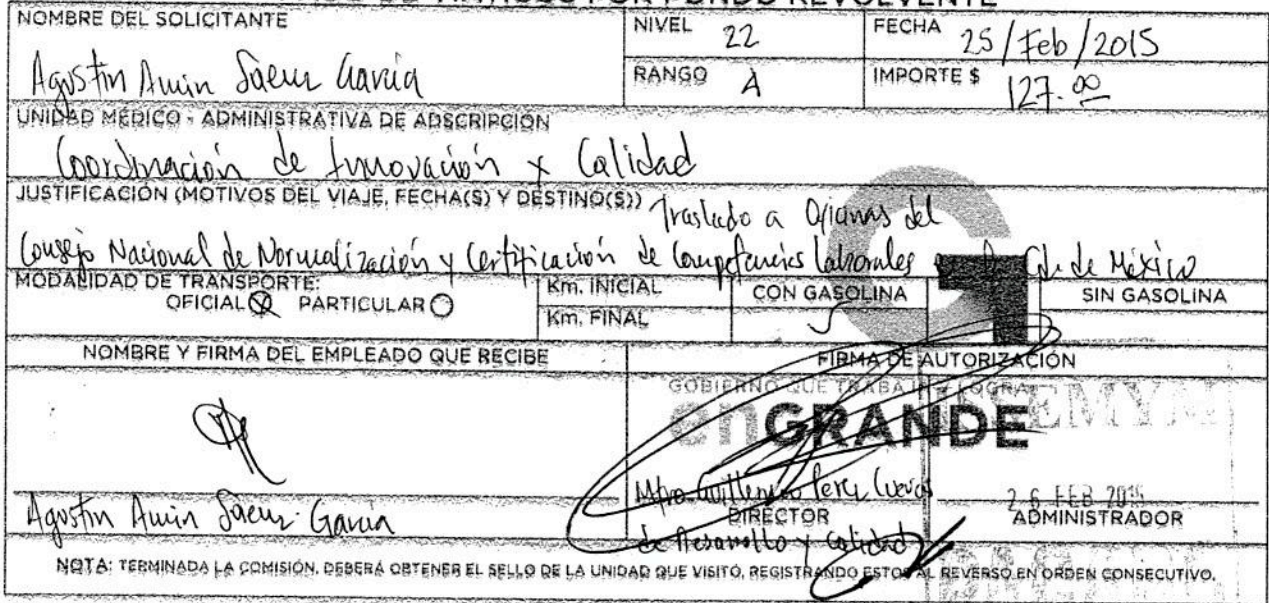 POR FONDO REVOLVENTE
NOMBRE DEL SOLICITANTE
Agustin Amin Saenz Garcia
NIVEL 22
FECHA 25/Feb/2015
RANGO A
IMPORTE $ 127.00
UNIDAD MÉDICO - ADMINISTRATIVA DE ADSCRIPCIÓN
Coordinación de Innovación y Calidad
JUSTIFICACIÓN (MOTIVOS DEL VIAJE, FECHA(S) Y DESTINO(S)) Traslado a Oficinas del
Consejo Nacional de Normalización y Certificación de Competencias laborales Cd. de México
MODALIDAD DE TRANSPORTE:
OFICIAL PARTICULAR
Km. INICIAL
Km. FINAL
CON GASOLINA
SIN GASOLINA
NOMBRE Y FIRMA DEL EMPLEADO QUE RECIBE
FIRMA DE AUTORIZACIÓN
GOBIERNO QUE TRABAJA Y LOGRA
enGRANDE
ISSEMYM
Agustin Amin Saenz Garcia
Mtro. Guillermo Perez Cuevas
DIRECTOR
de Desarrollo y Calidad
26 FEB 2015
ADMINISTRADOR
NOTA: TERMINADA LA COMISIÓN, DEBERÁ OBTENER EL SELLO DE LA UNIDAD QUE VISITÓ, REGISTRANDO ESTOS AL REVERSO EN ORDEN CONSECUTIVO.